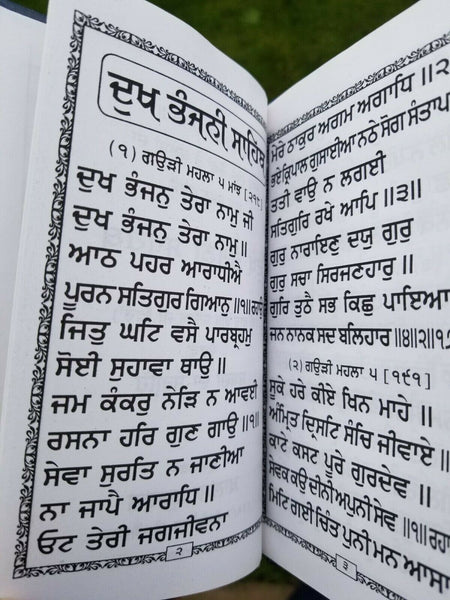 ਦੁਖ ਭੰਜਨੀ ਸਾਹਿਬ
(੧) ਗਉੜੀ ਮਹਲਾ ੫ ਮਾਂਝ [੨੧੮]
ਦੁਖ ਭੰਜਨੁ ਤੇਰਾ ਨਾਮੁ ਜੀ
ਦੁਖ ਭੰਜਨੁ ਤੇਰਾ ਨਾਮੁ॥
ਆਠ ਪਹਰ ਆਰਾਧੀਐ
ਪੂਰਨ ਸਤਿਗੁਰ ਗਿਆਨੁ॥੧॥
ਜਿਤੁ ਘਟਿ ਵਸੈ ਪਾਰਬ੍ਰਹਮੁ
ਸੋਈ ਸੁਹਾਵਾ ਥਾਉ॥
ਜਮ ਕੰਕਰੁ ਨੇੜਿ ਨ ਆਵਈ
ਰਸਨਾ ਹਰਿ ਗੁਣ ਗਾਉ॥੧॥
ਸੇਵਾ ਸੁਰਤਿ ਨ ਜਾਣੀਆ
ਨਾ ਜਾਪੈ ਆਰਾਧਿ॥
ਓਟ ਤੇਰੀ ਜਗਜੀਵਨਾ
੨
ਮੇਰੇ ਠਾਕੁਰ ਅਗਮ ਅਗਾਧਿ॥੨
ਭਏ ਕ੍ਰਿਪਾਲ ਗੁਸਾਈਆ ਨਠੇ ਸੋਗ ਸੰਤਾਪ
ਤਤੀ ਵਾਉ ਨ ਲਗਈ
ਸਤਿਗੁਰਿ ਰਖੇ ਆਪਿ॥੩॥
ਗੁਰੁ ਨਾਰਾਇਣੁ ਦਯੁ ਗੁਰੁ
ਗੁਰੁ ਸਚਾ ਸਿਰਜਣਹਾਰੁ॥
ਗੁਰਿ ਤੁਠੈ ਸਭ ਕਿਛੁ ਪਾਇਆ
ਜਨ ਨਾਨਕ ਸਦ ਬਲਿਹਾਰ॥੪॥੨॥੧੭
(੨) ਗਉੜੀ ਮਹਲਾ ੫ [੧੯੧]
ਸੂਕੇ ਹਰੇ ਕੀਏ ਖਿਨ ਮਾਹੇ॥
ਅੰਮ੍ਰਿਤ ਦ੍ਰਿਸਟਿ ਸੰਚਿ ਜੀਵਾਏ॥
ਕਾਟੇ ਕਸਟ ਪੂਰੇ ਗੁਰਦੇਵ॥
ਸੇਵਕ ਕਉ ਦੀਨੀ ਅਪੁਨੀ ਸੇਵ॥੧॥ਰਹਾ
ਮਿਟਿ ਗਈ ਚਿੰਤ ਪੁਨੀ ਮਨ ਆਸਾ
੩